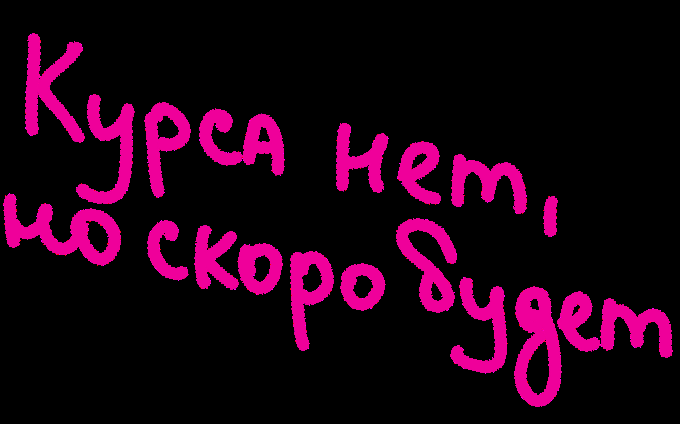 Курса нет,
но скоро будет